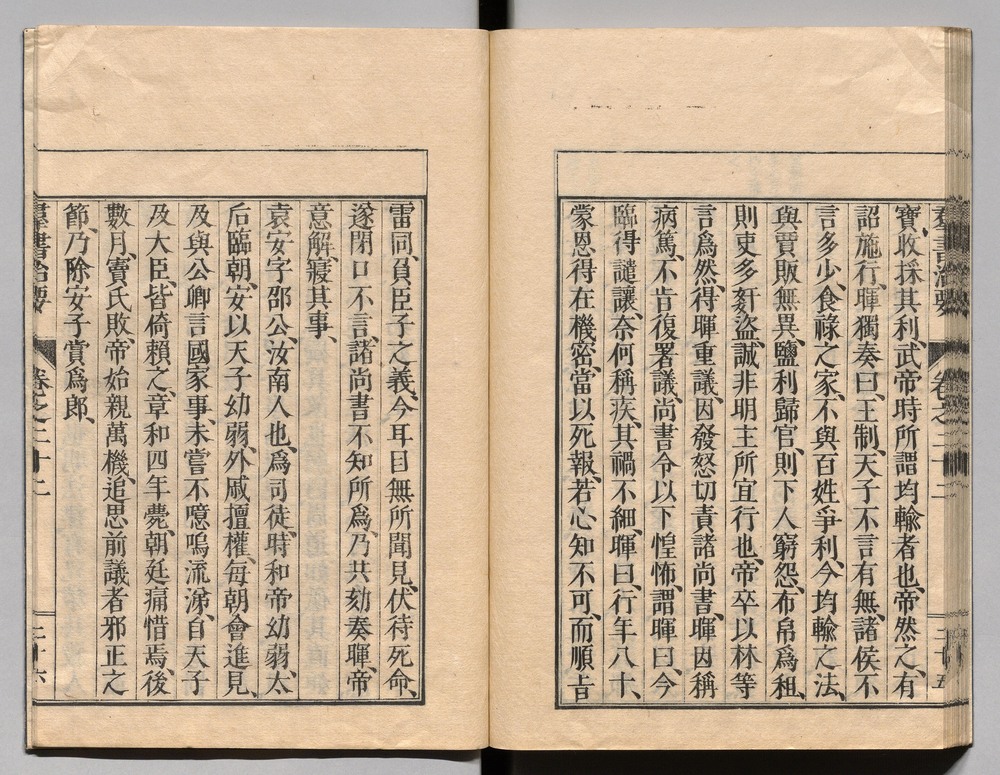 羣書治要 卷之二十二 二十五
寶、收採其利、武帝時所謂均輸者也、帝然之、有
詔施行、暉獨奏曰、王制、天子不言有無、諸侯不
言多少、食祿之家、不與百姓爭利、今均輸之法、
與賈販無異、鹽利歸官、則下人窮怨、布帛爲租、
則吏多姧盜、誠非明主所宜行也、帝卒以林等
言爲然、得暉重議、因發怒、切責諸尚書、暉因稱
病篤、不肯復署議、尚書令以下惶怖、謂暉曰、今
臨得譴讓、奈何稱疾、其禍不細、暉曰、行年八十、
蒙恩得在機密、當以死報、若心知不可、而順㫖
雷同、負臣子之義、今耳目無所聞見、伏待死命、
遂閉口不言、諸尚書不知所爲、乃共劾奏暉、帝
意解、寢其事、
袁安字邵公、汝南人也、爲司徒、時和帝幼弱、太
后臨朝、安以天子幼弱、外戚擅權、每朝會進見、
及與公卿言國家事、未嘗不噫嗚流涕、自天子
及大臣、皆倚賴之、章和四年薨、朝廷痛惜焉、後
數月、竇氏敗、帝始親萬機、追思前議者邪正之
節、乃除安子賞爲郎、
羣書治要 卷之二十二 二十六